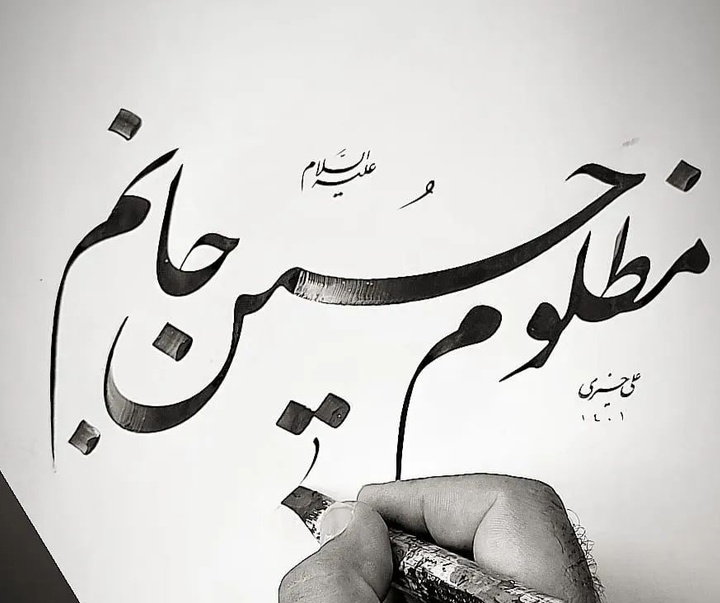 مظلوم حُسین جانم
علیه السَّلام
علی خیری
۱۴۰۱